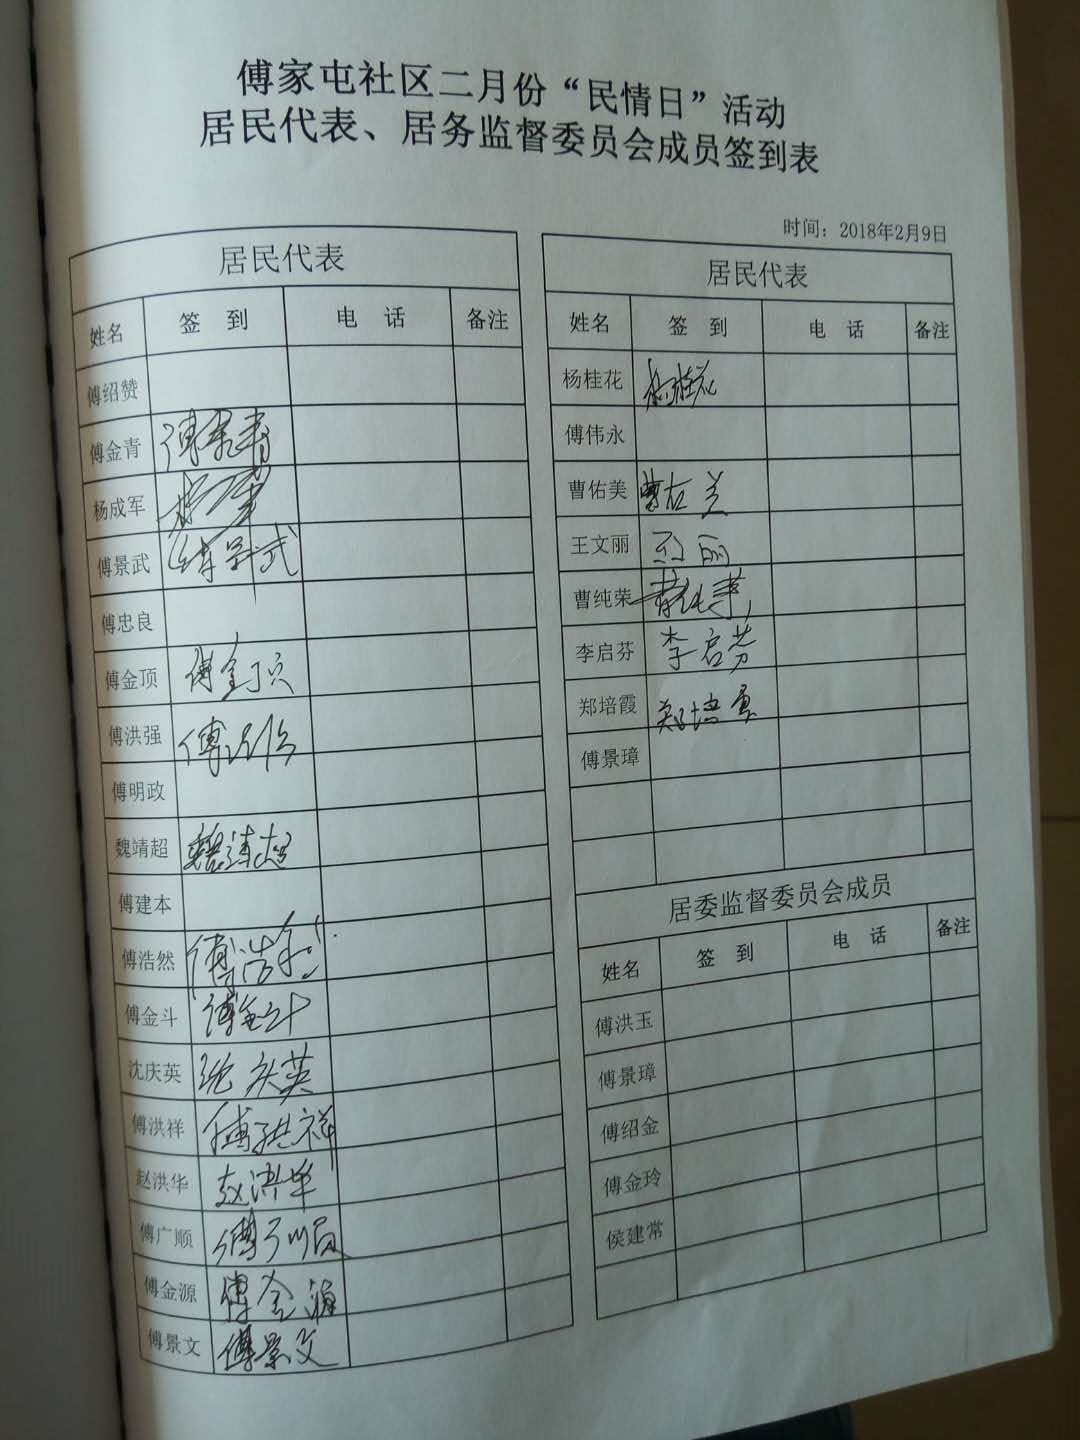 傅家屯社区二月份“民情日”活动
居民代表、居务监督委员会成员签到表
时间：2018年2月9日
居民代表
姓名 签 到 电 话 备注
傅绍赞
傅金青 傅金青
杨成军
傅景武 傅景武
傅忠良
傅金顶 傅金顶
傅洪强 傅洪强
傅明政
魏靖超 魏靖超
傅建本
傅浩然 傅浩然
傅金斗 傅金斗
沈庆英 沈庆英
傅洪祥 傅洪祥
赵洪华 赵洪华
傅广顺 傅广顺
傅金源 傅金源
傅景文 傅景文
居民代表
姓名 签 到 电 话 备注
杨桂花 杨桂花
傅伟永
曹佑美 曹右美
王文丽 王文丽
曹纯荣 曹纯荣
李启芬 李启芳
郑培霞 郑培景
傅景璋
居委监督委员会成员
姓名 签 到 电 话 备注
傅洪玉
傅景璋
傅绍金
傅金玲
侯建常